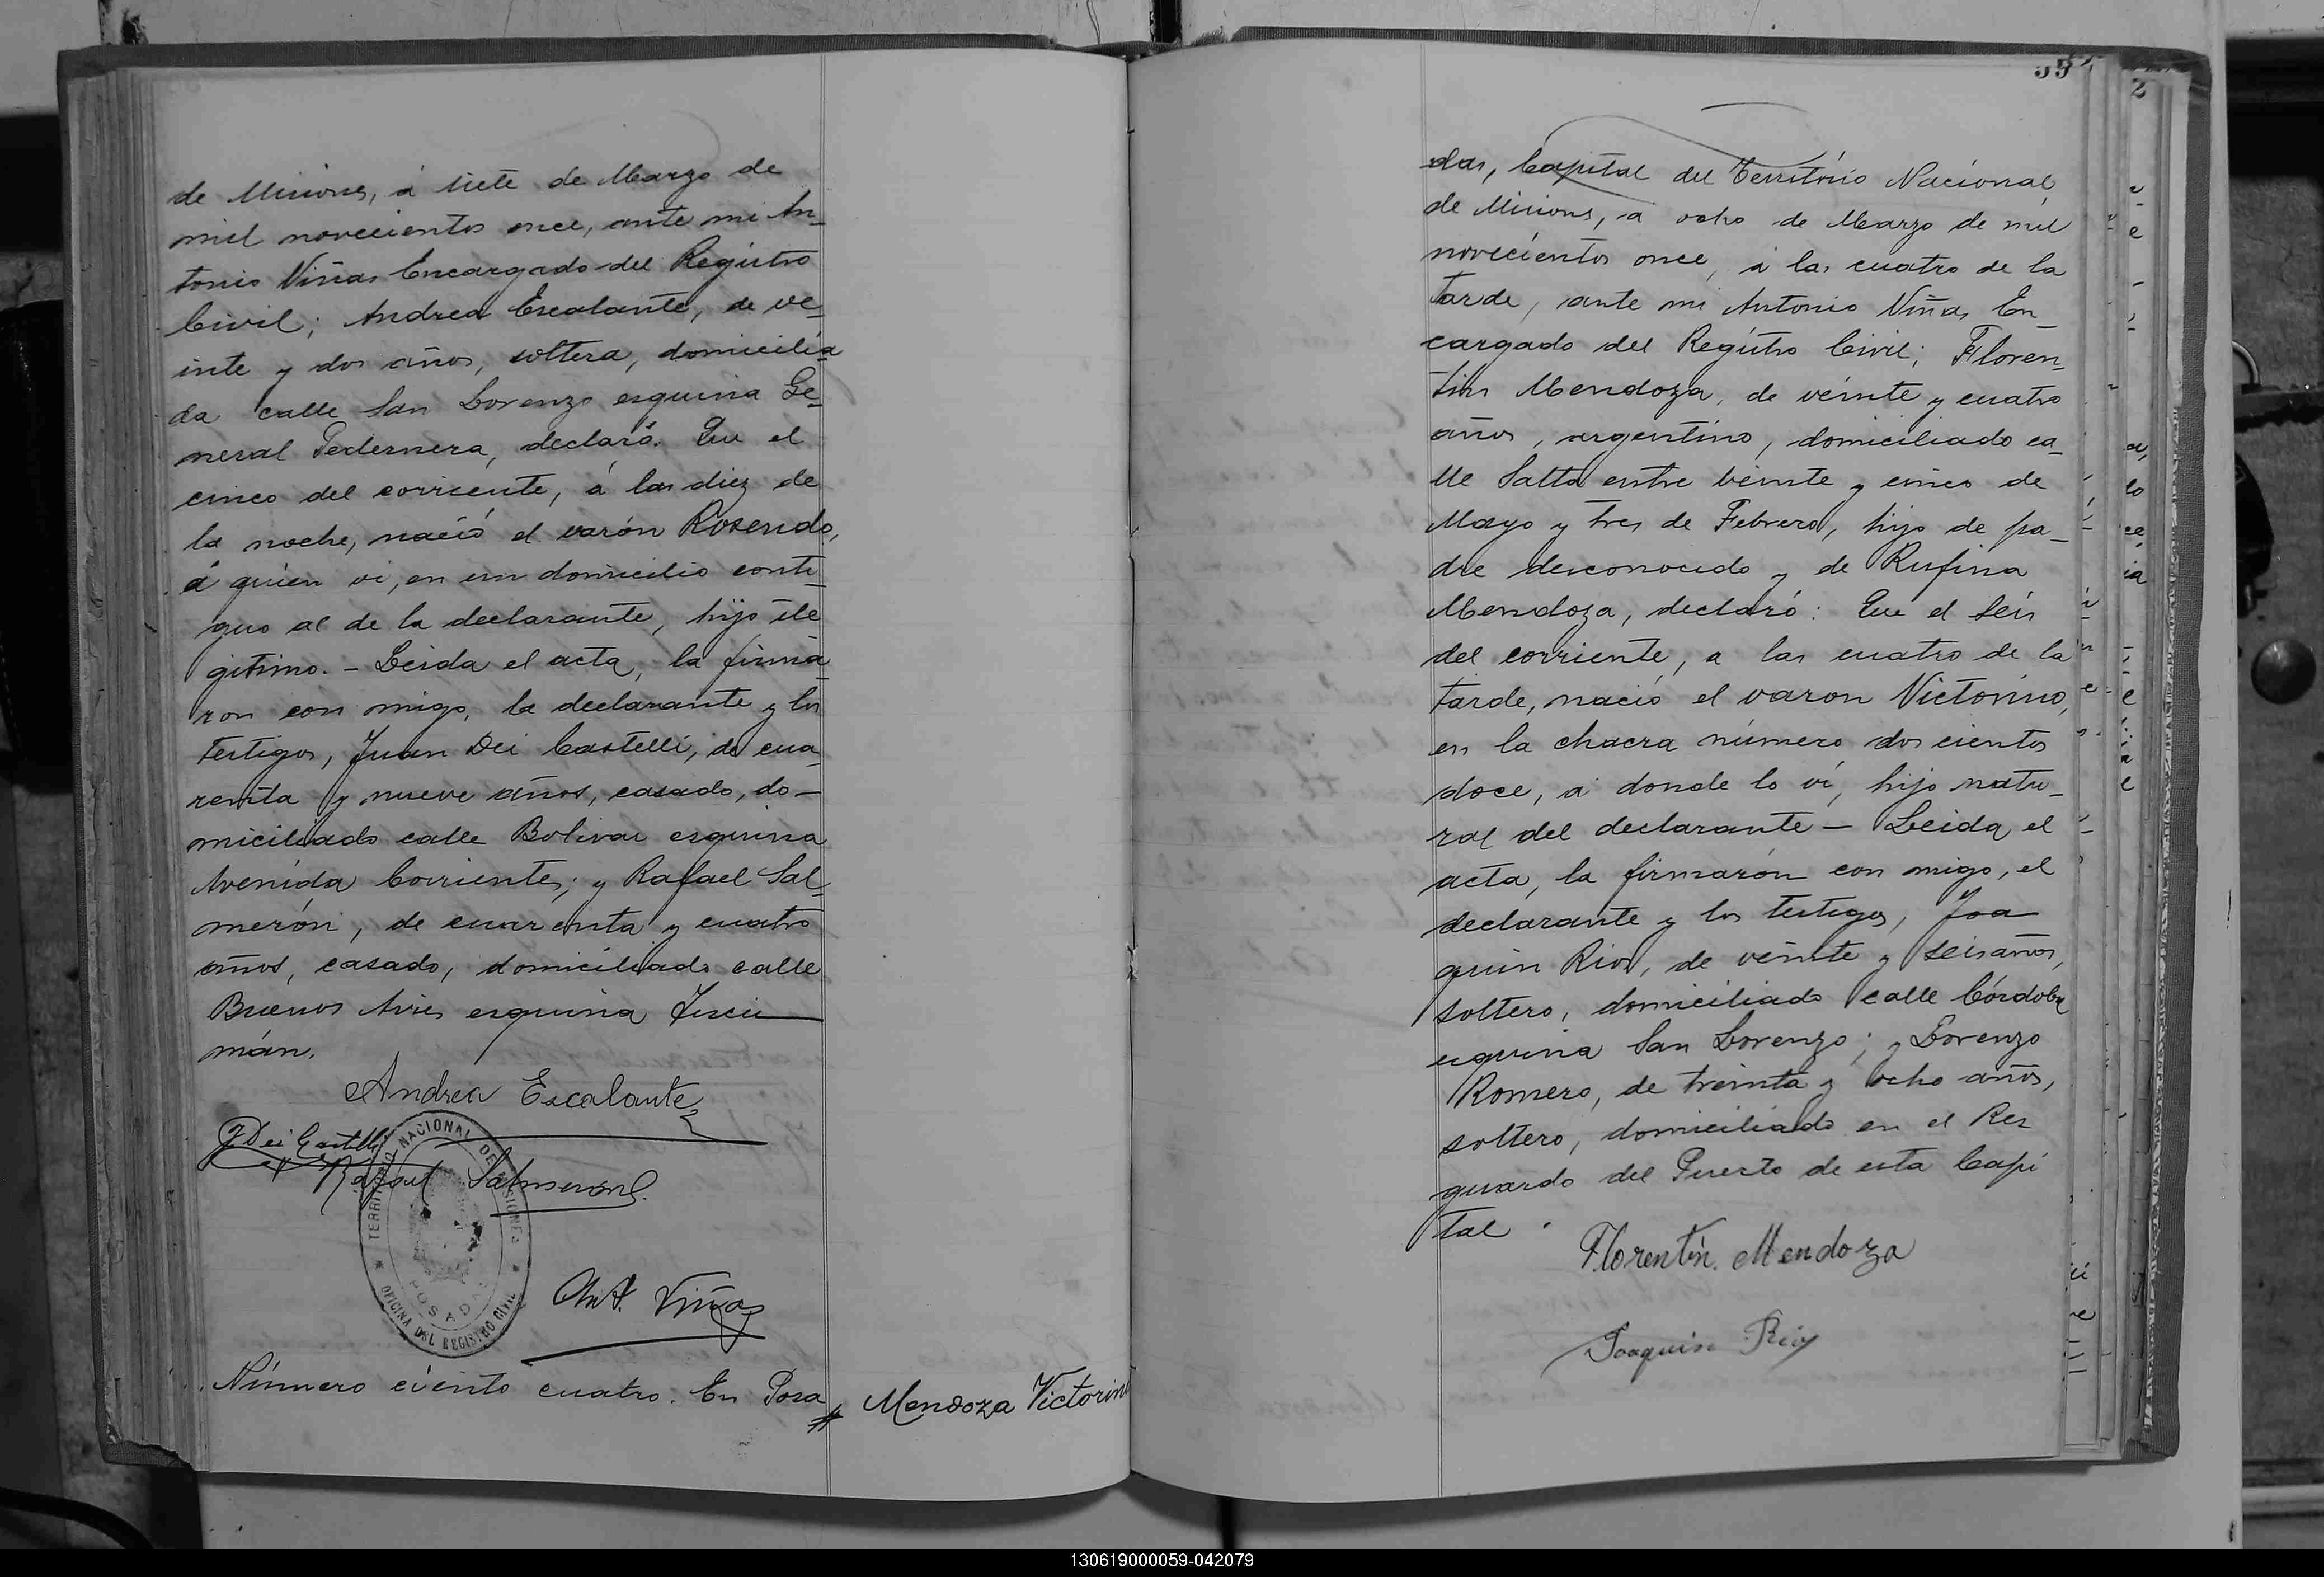 de Misiones, á siete de Marzo de
mil novecientos once, ante mi An_
tonio Viñas Encargado del Registro
Civil; Andrea Escalante, de ve_
inte y dos años, soltera, domicilia
da calle San Lorenzo esquina Ge_
neral Pedernera, declaró: Que el
cinco del corriente, á las diez de
la noche, nació el varón Rosendo,
á quien vi, en un domicilio conti_
guo al de la declarante, hijo ile
gitimo. – Leida el acta, la firma_
ron con migo, la declarante y los
testigos, Juan Dei Castelli, de cua_
renta y nueve años, casado, do–
miciliado calle Bolivar esquina
Avenida Corrientes; y Rafael Sal_
merón, de cuarenta y cuatro
años, casado, domiciliado calle
Buenos Aires esquina Tucu—
mán.
Andrea Escalante
J Dei Castelli
Rafael Salmerón
TERRITORIO NACIONAL DE MISIONES
POSADAS
OFICINA DEL REGISTRO CIVIL
Ant. Viñas
Número ciento cuatro. En Posa
# Mendoza Victorino
39
2
das, Capital del Território Nacional
de Misiones, a ocho de Marzo de mil
novecientos once, á las cuatro de la
tarde, ante mi Antonio Viñas En_
cargado del Registro Civil; Floren_
tin Mendoza, de veinte y cuatro
años, argentino, domiciliado ca_
lle Salta entre veinte y cinco de
Mayo y tres de Febrero, hijo de pa_
dre desconocido y de Rufina
Mendoza, declaró: Que el seis
del corriente, a las cuatro de la
tarde, nació el varon Victorino,
en la chacra número dos cientos
doce, a donde lo vi, hijo natu_
ral del declarante — Leida el
acta, la firmarón con migo, el
declarante y los testigos, Joa
quin Rios, de veinte y seis años,
soltero, domiciliado calle Córdoba
esquina San Lorenzo; y Lorenzo
Romero, de treinta y ocho años,
soltero, domiciliado en el Res
guardo del Puerto de esta Capi
tal.
Florentín. Mendoza
Joaquin Rios
130619000059-042079